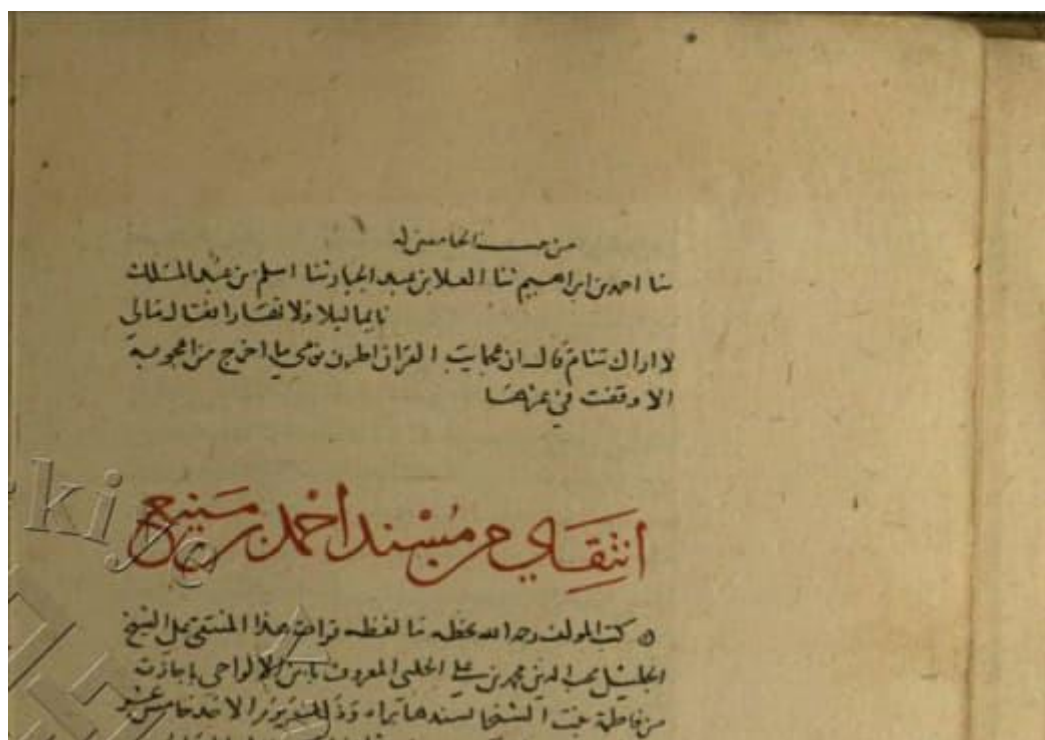 من حديث الحامض له
ثنا احمد بن ابراهيم ثنا العلا بن عبد الجبار ثنا اسلم بن عبد الملك
نايما ليلا ولا نهارا فقال مالي
لا اراك تنام قال ان عجايب القران اطرن نومي ما اخرج من اعجوبة
الا وقعت في غيرها
انتقاي من مسند احمد بن منيع
كتب المولف رحمه الله بخطه ما لفظه قرات هذا المنتقى على الشيخ
الجليل محمد بن علي الحلبي المعروف باجازته
من فاطمة بنت لسندها يوم الاحد خامس عشر